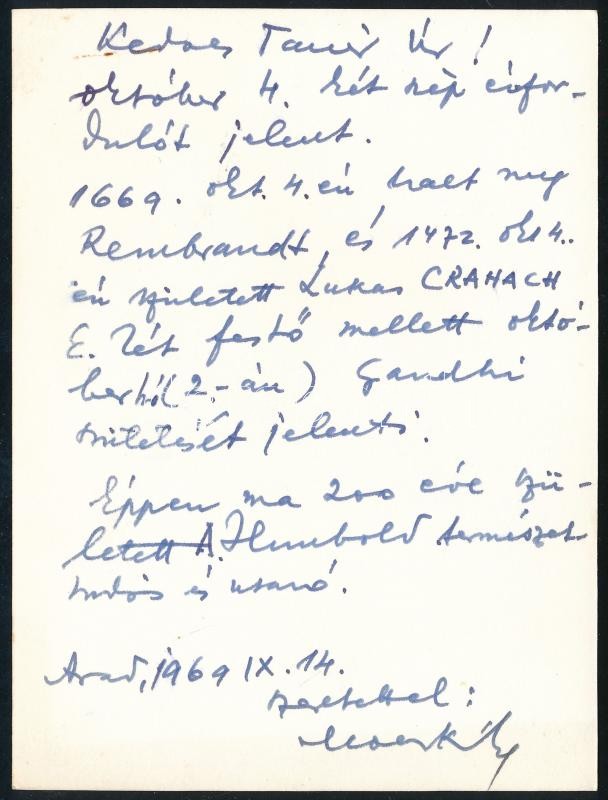 Kedves Tanár Úr!
október 4. két szép évfor-
dulót jelent.
1669. okt. 4.én halt meg
Rembrandt, és 1472. okt 4..
én született Lukas CRANACH
E. két festő mellett októ-
ber hó (2.-án) Gandhi
születését jelenti.
Éppen ma 200 éve szü-
letett A. Humbold természet-
tudós és utazó.
Arad, 1969 IX. 14.
szeretettel: